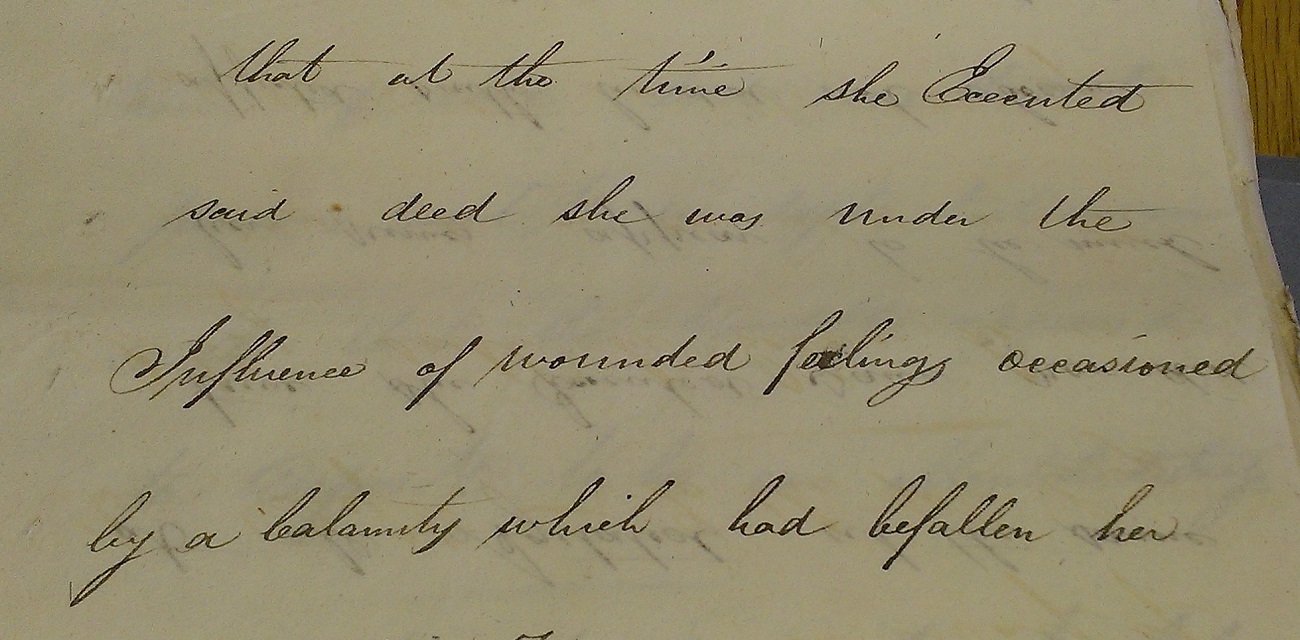 that at the time she Executed
said deed she was under the
Influence of wounded feelings occasioned
by a Calamity which had befallen her